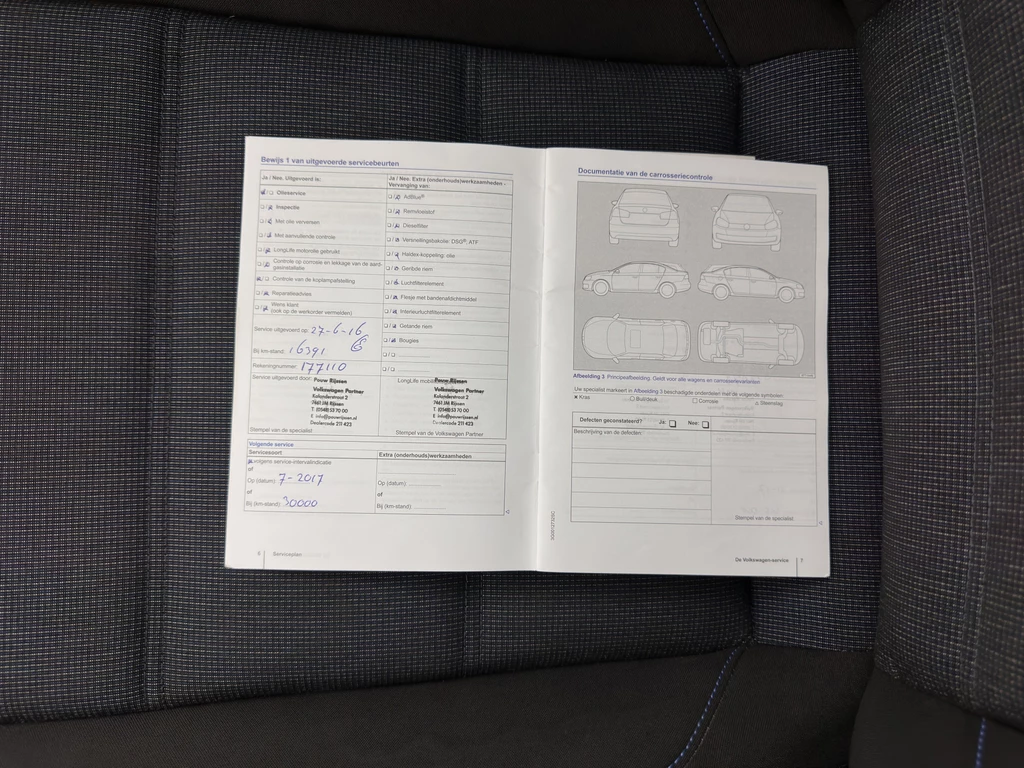 Bewijs 1 van uitgevoerde servicebeurten
Ja / Nee, Uitgevoerd is:
Olieservice
Inspectie
Met olie verversen
Met aanvullende controle
LongLife motorolie gebruikt
Controle op corrosie en lekkage van de aardgasinstallatie
Controle van de koplampafstelling
Reparatieadvies
Wens klant
(ook op de werkorder vermelden)
Ja / Nee, Extra (onderhouds)werkzaamheden -
Vervanging van:
AdBlue®
Remvloeistof
Dieselfilter
Versnellingsbakolie: DSG®; ATF
Haldex-koppeling: olie
Geribde riem
Luchtfilterelement
Flesje met bandenafdichtmiddel
Interieurluchtfilterelement
Getande riem
Bougies
Service uitgevoerd op: 27-6-16
Bij km-stand: 16391
Rekeningnummer: 177110
Service uitgevoerd door: Pouw Rijssen
Volkswagen Partner
Kalanderstraat 2
7461 JM Rijssen
T (0548) 53 70 00
E info@pouwrijssen.nl
Dealercode 211 423
Stempel van de specialist
LongLife
Pouw Rijssen
Volkswagen Partner
Kalanderstraat 2
7461 JM Rijssen
T (0548) 53 70 00
E info@pouwrijssen.nl
Dealercode 211 423
Stempel van de Volkswagen Partner
Volgende service
Servicesoort
Extra (onderhouds)werkzaamheden
volgens service-intervalindicatie
of
Op (datum): 7-2017
of
Bij (km-stand): 30000
Op (datum):
of
Bij (km-stand)
6 Serviceplan
Documentatie van de carrosseriecontrole
Afbeelding 3 Principeafbeelding. Geldt voor alle wagens en carrosserievarianten
Uw specialist markeert in Afbeelding 3 beschadigde onderdelen met de volgende symbolen:
Kras
Buil/deuk
Corrosie
Steenslag
Defecten geconstateerd? Ja: Nee:
Beschrijving van de defecten:
Stempel van de specialist
De Volkswagen-service 7